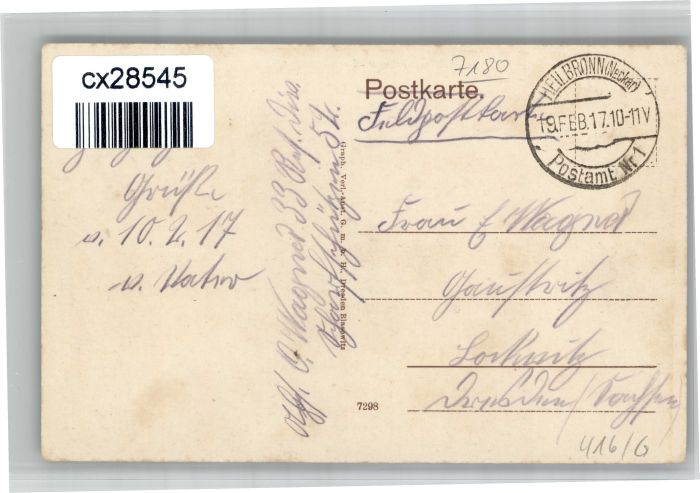 cx28545
7180
Postkarte.
Feldpostkarte
HEILBRONN (Neckar)
19.FEB.17.10-11V
Postamt Nr 1
Grüße
v. 10.2.17
v. Vater
Abs. O. Wagner 33
54.
Graph. Verl.-Anst. G. m. b. H., Dresden Blasewitz
Frau E Wagner
Gaustritz
Lockwitz
Dresden (Sachsen)
7298
416/6